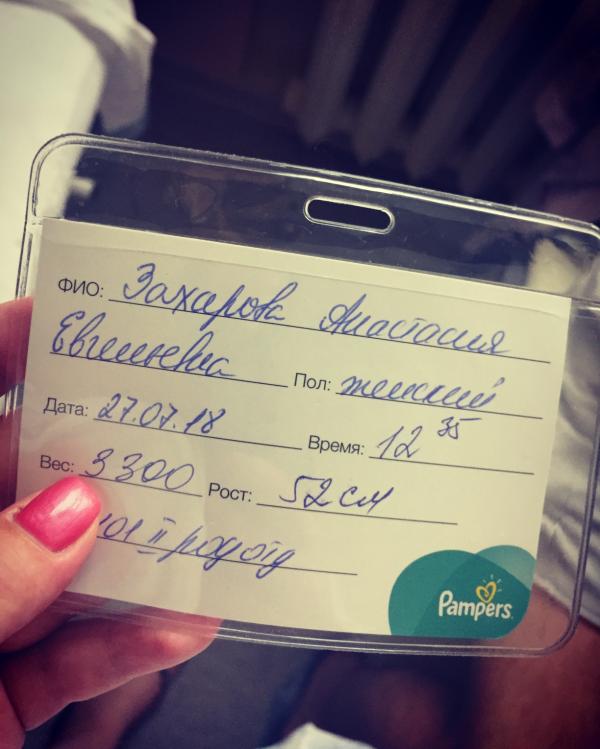 ФИО: Захарова Анастасия
Евгеньевна Пол: женский
Дата: 27.07.18 Время: 12 35
Вес: 3300 Рост: 52 см
101 II род отд
Pampers